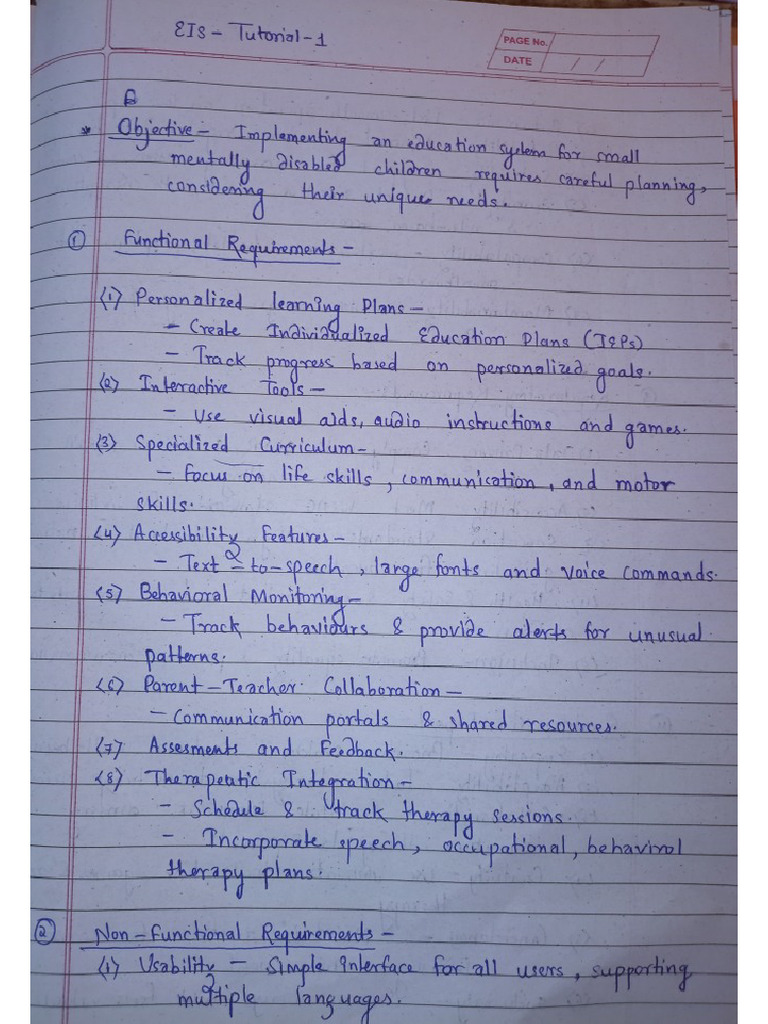 EIS - Tutorial - 1
PAGE No.
DATE / /
* Objective - Implementing an education system for small
mentally disabled children requires careful planning,
considering their unique needs.
① Functional Requirements -
(1) Personalized learning Plans -
- Create Individualized Education Plans (IEPs)
- Track progress based on personalized goals.
(2) Interactive Tools -
- Use visual aids, audio instructions and games.
(3) Specialized Curriculum -
- Focus on life skills, communication, and motor
skills.
(4) Accessibility Features -
- Text - to - speech, large fonts and voice commands.
(5) Behavioral Monitoring -
- Track behaviours & provide alerts for unusual
patterns.
(6) Parent - Teacher Collaboration -
- Communication portals & shared resources.
(7) Assesments and Feedback.
(8) Therapeutic Integration -
- Schedule & track therapy sessions.
- Incorporate speech, occupational, behavirol
therapy plans.
② Non - Functional Requirements -
(1) Usability - Simple interface for all users, supporting
multiple languages.